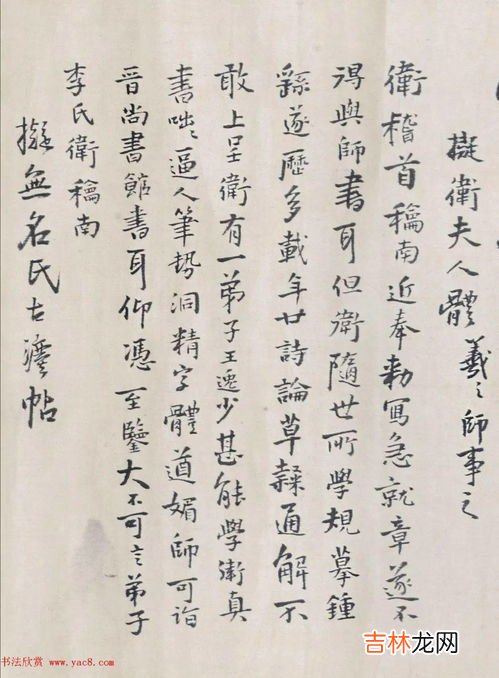 擬衛夫人體 羲之師事之
衛稽首穐南近奉勅寫急就章遂不
得與師書耳但衛隨世所學規摹鍾
繇遂歷多載年廿詩論草隸通解不
敢上呈衛有一弟子王逸少甚能學衛真
書咄々逼人筆勢洞精字體遒媚師可詣
晉尚書館書耳仰憑至鑒大不可言弟子
李氏衛穐南
擬無名氏古帖
书法欣赏 www.yac8.com
吉林龙网